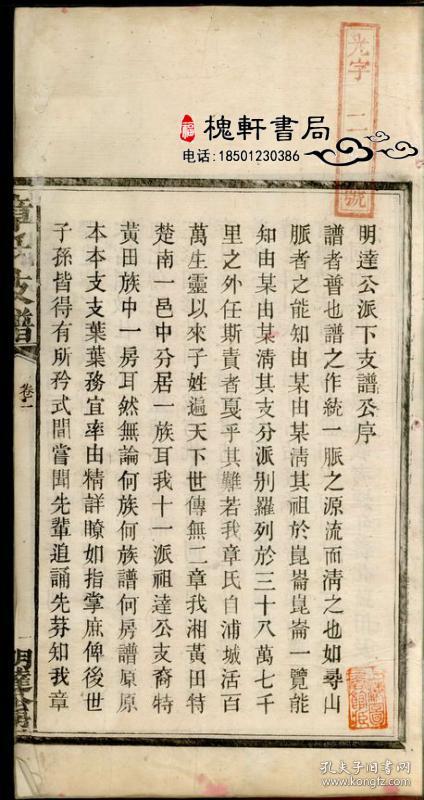 光字二號
福
槐軒書局
电话:18501230386
明達公派下支譜公序
譜者普也譜之作統一脈之源流而清之也如尋山
脈者之能知由某由某清其祖於崑崙崑崙一覽能
知由某由某清其支分派别羅列於三十八萬七千
里之外任斯責者戛乎其難若我章氏自浦城活百
萬生靈以來子姓遍天下世傳無二章我湘黃田特
楚南一邑中分居一族耳我十一派祖達公支裔特
黃田族中一房耳然無論何族何族譜何房譜原原
本本支支葉葉務宜率由精詳瞭如指掌庶俾後世
子孫皆得有所矜式間嘗聞先輩追誦先芬知我章
章氏支譜
卷一
明達公
孔夫子旧书网